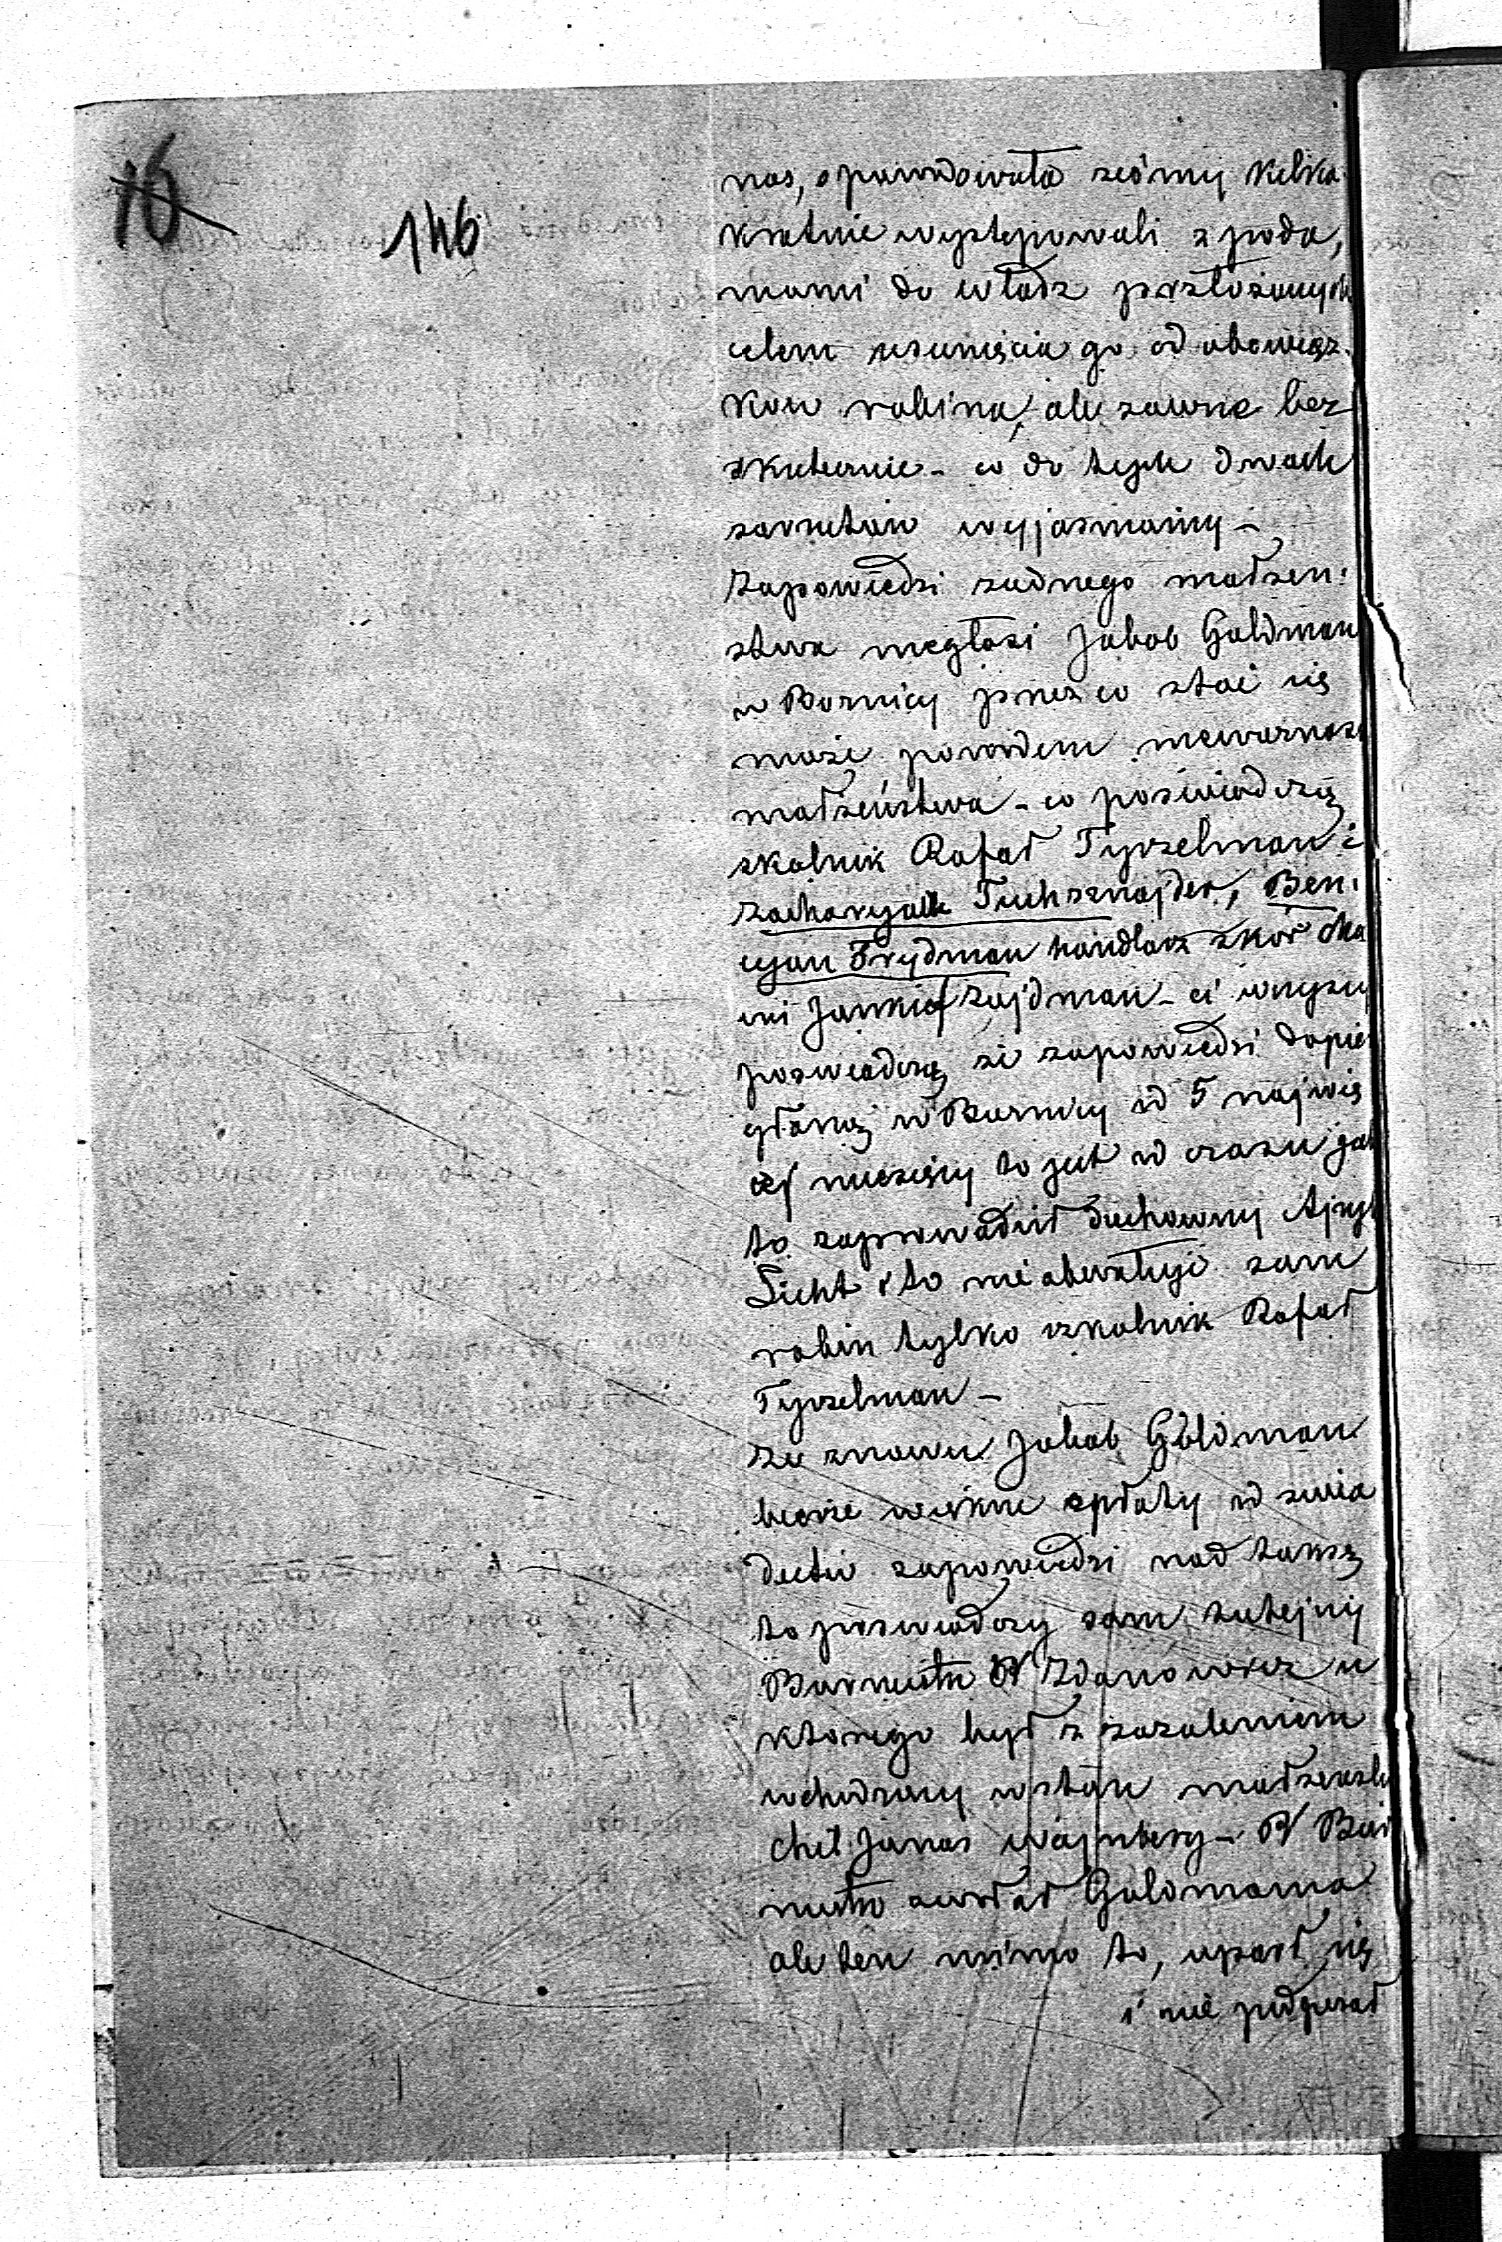 16
146
nas, spowodowała żeśmy kilka.
krotnie występowali z poda,
niami do władz przełożonych
celem usunięcia go od obowiąz.
kow rabina, ale zawsze bez
skutecznie - co do tych dwoch
zarzutow wyjasniamy -
Zapowiedzi żadnego małżen:
stwa niegłosi Jakob Goldman
w Bożnicy przez co stać się
może powodem nieważnosc
małżeństwa - co poświadczą
szkolnik Rafał Tyszelman i
Zacharyasz Tuchsznajder, Ben.
cyan Frydman handlarz skór
Jankief Zajdman - ci wszyscy
poswiadczą że zapowiedzi dopie
głoszą w Bożnicy od 5 najwię
cej miesięcy to jest od czasu jak
to zaprowadził duchowny
Licht i to nie obwołuje sam
rabin tylko szkolnik Rafał
Tyszelman -
Ze znowu Jakob Goldman
bierze opłaty od swia
dectw zapowiedzi nad taksę
to poswiadczy sam tutejszy
Burmistrz W Zdanowicz u
ktorego był z zażaleniem
wchodzący w stan małżenski
chel Janas Wajnberg - W Bur
mistrz zawołał Goldmana
ale ten mimo to, uparł się
i nie podpisał